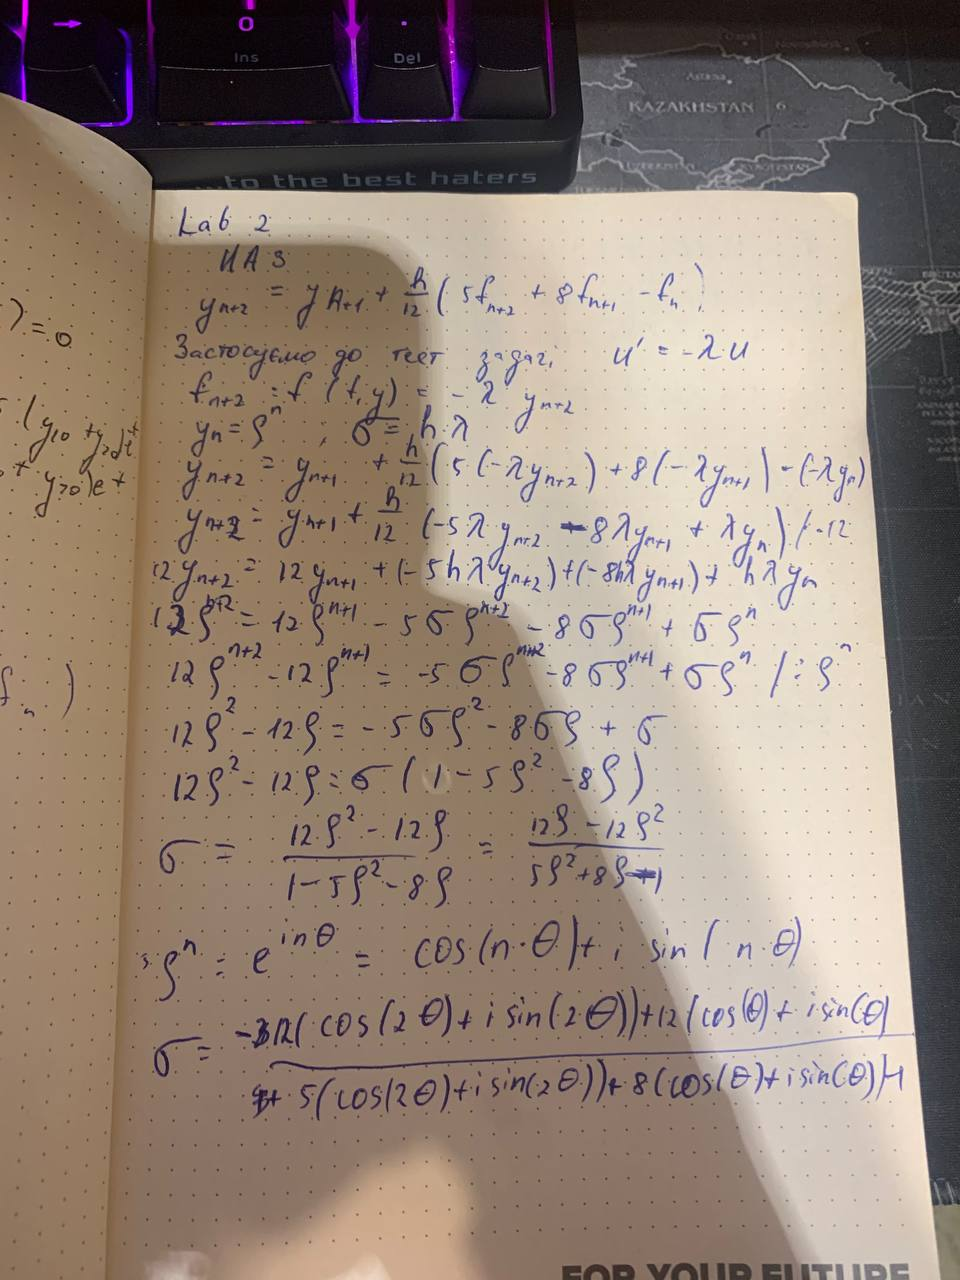 →
0
Ins
.
Del
KAZAKHSTAN 6
Astana
...to the best haters
) = 0
(y₁₀ + y₂₀)t
+ y₂₀)e^t
)
Lab 2
ИА3
y_{n+2} = y_{n+1} + h/12 (5f_{n+2} + 8f_{n+1} - f_n)
Застосуємо до тест задачі u' = -λu
f_{n+2} = f(t,y) = -λ y_{n+2}
y_n = ρ^n ; σ = h·λ
y_{n+2} = y_{n+1} + h/12 (5(-λy_{n+2}) + 8(-λy_{n+1}) - (-λy_n)
y_{n+2} = y_{n+1} + h/12 (-5λy_{n+2} - 8λy_{n+1} + λy_n) / ·12
12y_{n+2} = 12y_{n+1} + (-5hλy_{n+2}) + (-8hλy_{n+1}) + hλy_n
12ρ^{n+2} = 12ρ^{n+1} - 5σρ^{n+2} - 8σρ^{n+1} + σρ^n
12ρ^{n+2} - 12ρ^{n+1} = -5σρ^{n+2} - 8σρ^{n+1} + σρ^n / : ρ^n
12ρ² - 12ρ = -5σρ² - 8σρ + σ
12ρ² - 12ρ = σ(1 - 5ρ² - 8ρ)
σ = (12ρ² - 12ρ)/(1 - 5ρ² - 8ρ) = (12ρ - 12ρ²)/(5ρ² + 8ρ - 1)
ρ^n = e^{inθ} = cos(n·θ) + i sin(n·θ)
σ = (-12(cos(2θ) + i sin(2θ)) + 12(cos(θ) + i sin(θ))/(5(cos(2θ) + i sin(2θ)) + 8(cos(θ) + i sin(θ)) - 1
FOR YOUR FUTURE